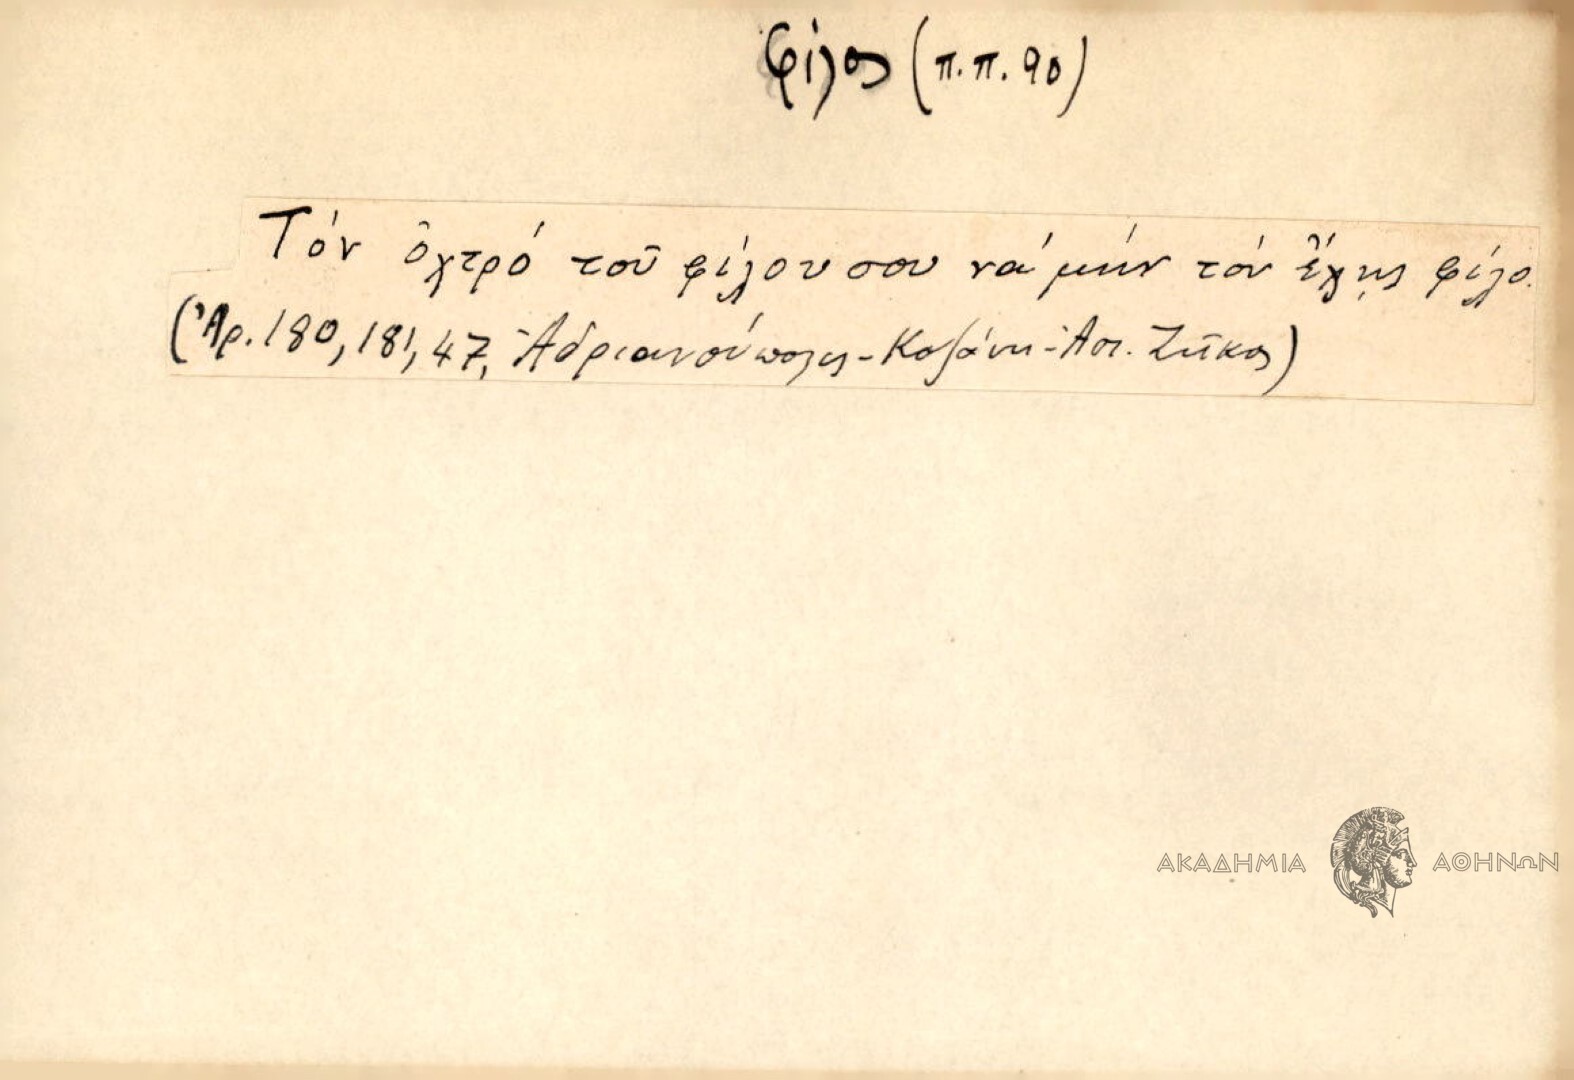 φίλος (π.π. 90)
Τόν ὀχτρό τοῦ φίλου σου νά μήν τόν ἔχῃς φίλο.
(Ἀρ. 180, 181, 47, Ἀδριανούπολις - Κοζάνη - Ἀπ. Ζῆκος)
ΑΚΑΔΗΜΙΑ ΑΘΗΝΩΝ